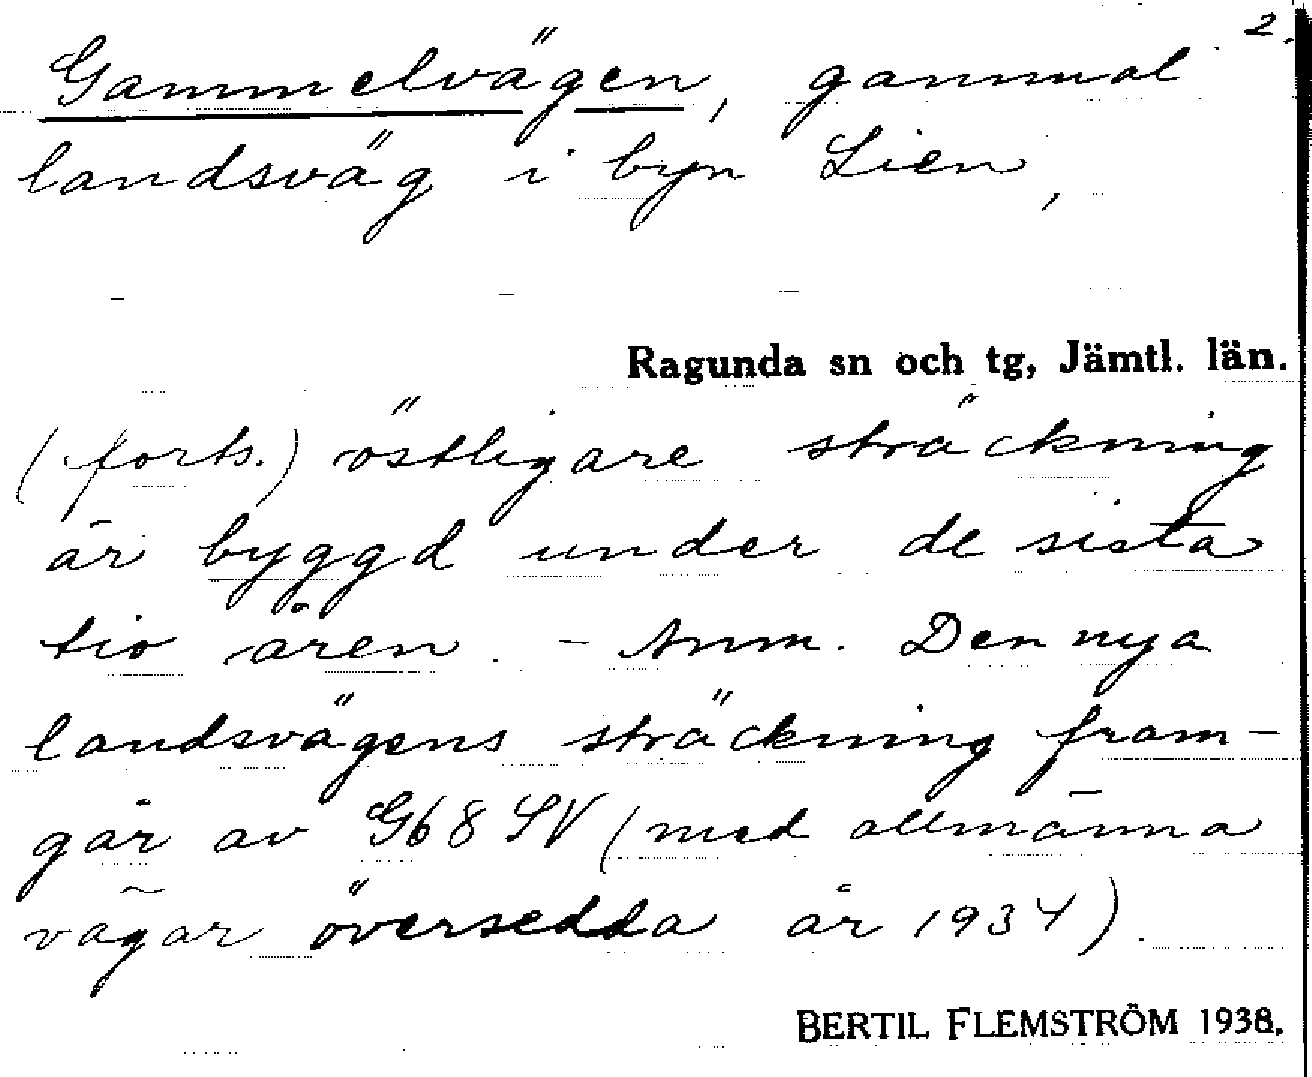 2.
Gammelvägen, gammal
landsväg i byn Lien,
Ragunda sn och tg, Jämtl. län.
(forts.) östligare sträckning
är byggd under de sista
tio åren. - Anm. Den nya
landsvägens sträckning fram-
går av G68SV (med allmänna
vägar översedda år 1934).
BERTIL FLEMSTRÖM 1938.